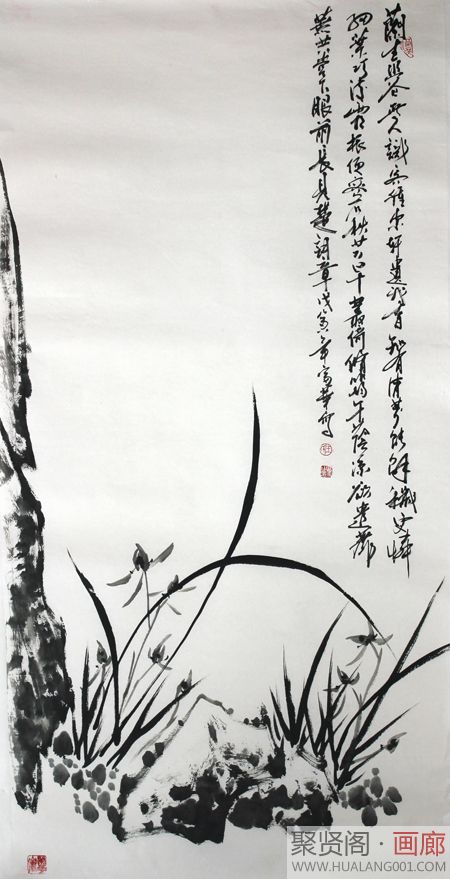 蘭生幽谷無人識客種東軒遺我香知有清芬能解穢更憐
細葉巧凌霜根便密石秋芳早叢倚脩筠午蔭涼欲遣蘼
蕪共堂下眼前長見楚詞章戊寅年富華寫
聚贤阁·画廊
WWW.HUALANG001.COM